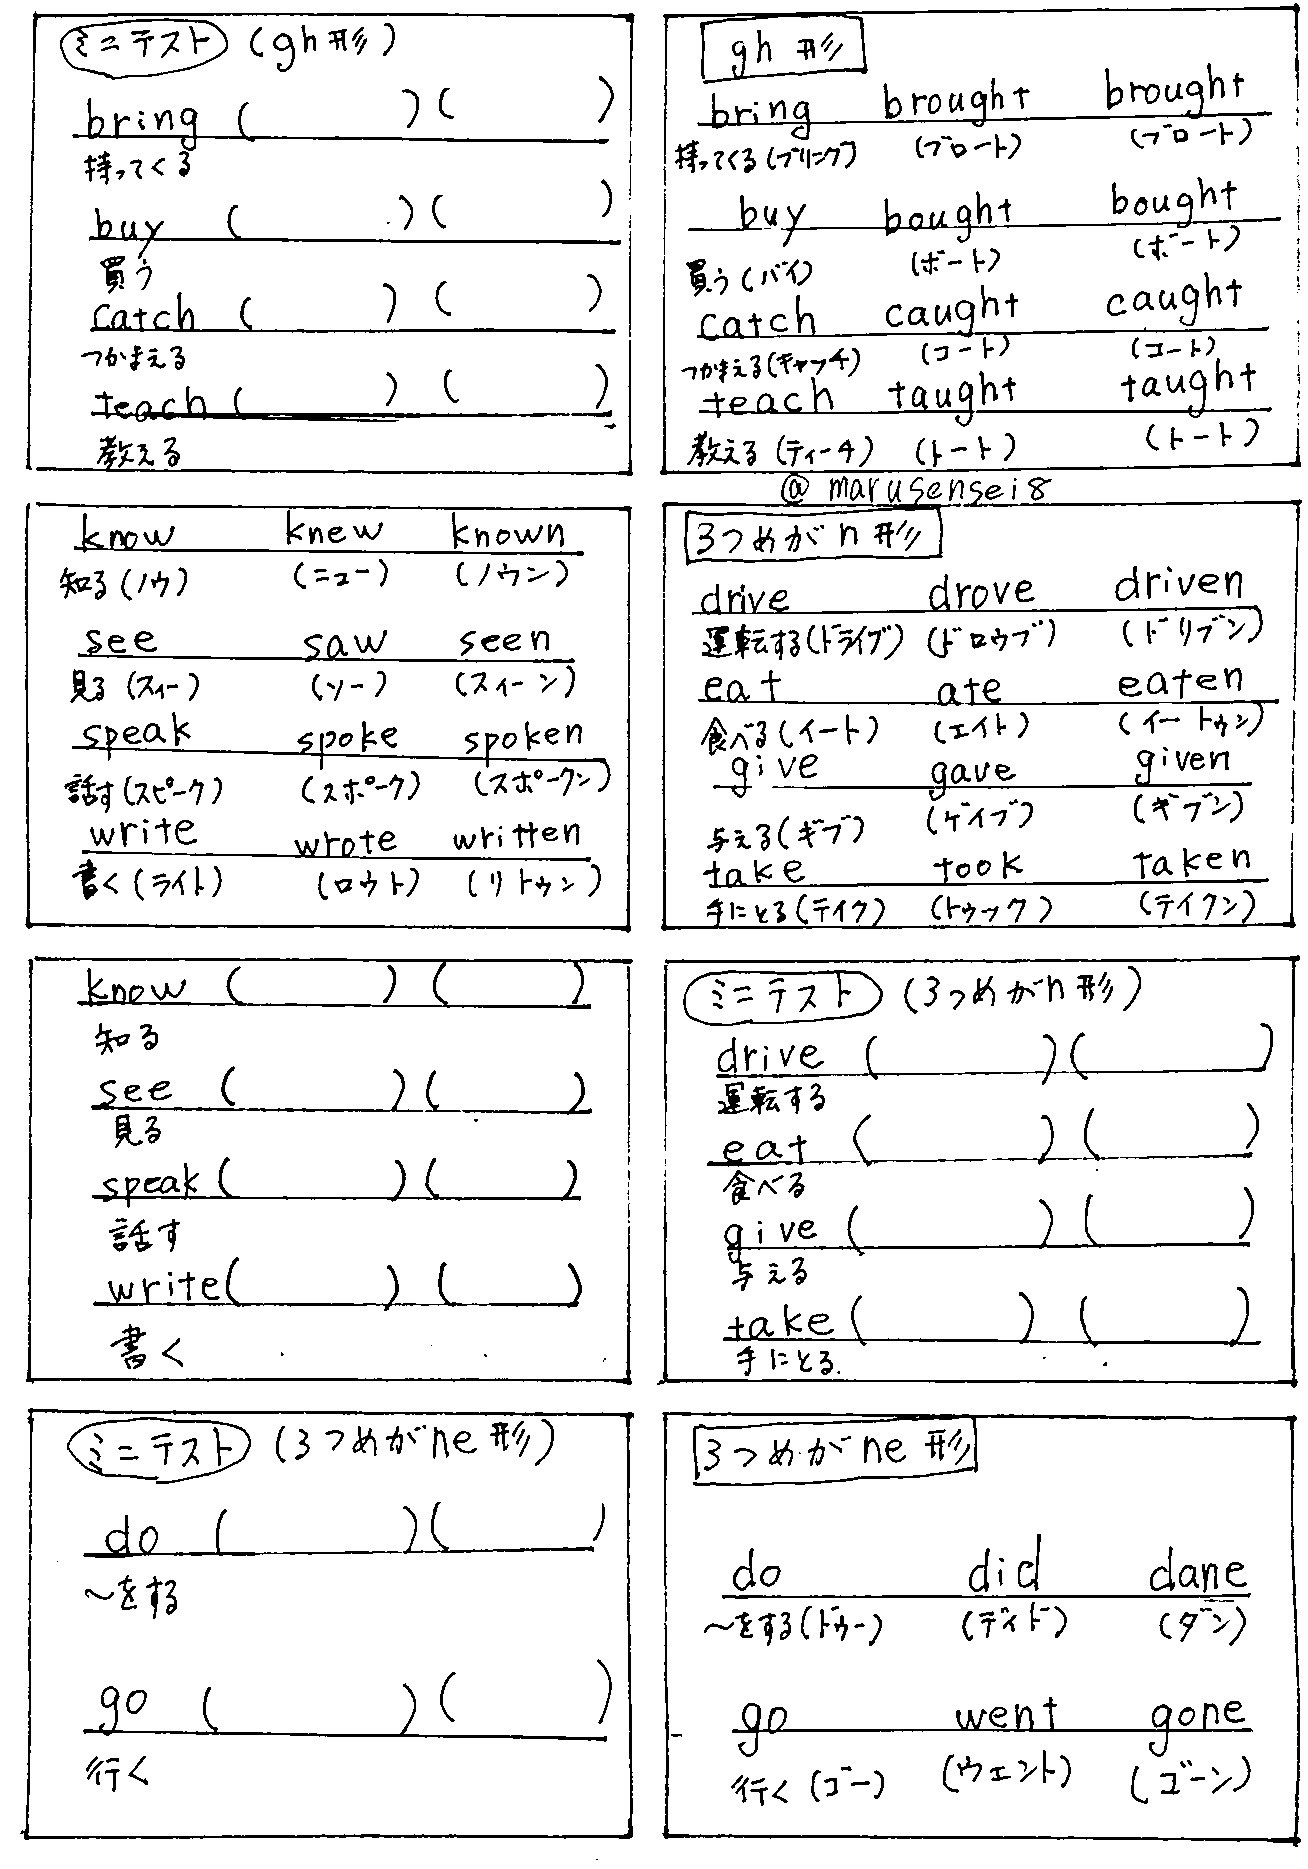 ミニテスト (gh形)
bring ( ) ( )
持ってくる
buy ( ) ( )
買う
catch ( ) ( )
つかまえる
teach ( ) ( )
教える
gh 形
bring brought brought
持ってくる(ブリング) (ブロート) (ブロート)
buy bought bought
買う(バイ) (ボート) (ボート)
catch caught caught
つかまえる(キャッチ) (コート) (コート)
teach taught taught
教える(ティーチ) (トート) (トート)
@marusensei8
know knew known
知る(ノウ) (ニュー) (ノウン)
see saw seen
見る(スィー) (ソー) (スィーン)
speak spoke spoken
話す(スピーク) (スポーク) (スポークン)
write wrote written
書く(ライト) (ロウト) (リトゥン)
3つめがn形
drive drove driven
運転する(ドライブ) (ドロウブ) (ドリブン)
eat ate eaten
食べる(イート) (エイト) (イートゥン)
give gave given
与える(ギブ) (ゲイブ) (ギブン)
take took taken
手にとる(テイク) (トゥック) (テイクン)
know ( ) ( )
知る
see ( ) ( )
見る
speak ( ) ( )
話す
write ( ) ( )
書く
ミニテスト (3つめがn形)
drive ( ) ( )
運転する
eat ( ) ( )
食べる
give ( ) ( )
与える
take ( ) ( )
手にとる
ミニテスト (3つめがne形)
do ( ) ( )
～をする
go ( ) ( )
行く
3つめがne形
do did dane
～をする(ドゥー) (ディド) (ダン)
go went gone
行く(ゴー) (ウェント) (ゴーン)